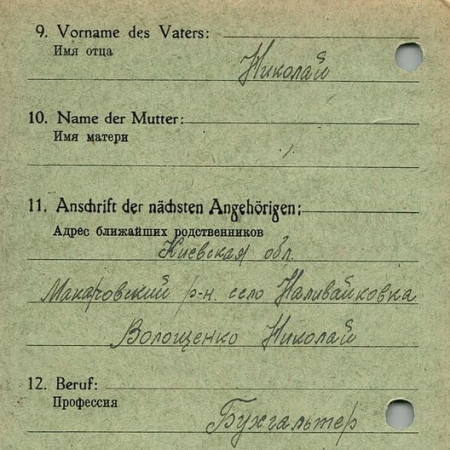 9. Vorname des Vaters:
Имя отца
Николай
10. Name der Mutter:
Имя матери
11. Anschrift der nächsten Angehörigen:
Адрес ближайших родственников
Киевская обл.
Макаровский р-н. село Наливайковка
Волощенко Николай
12. Beruf:
Профессия
Бухгалтер